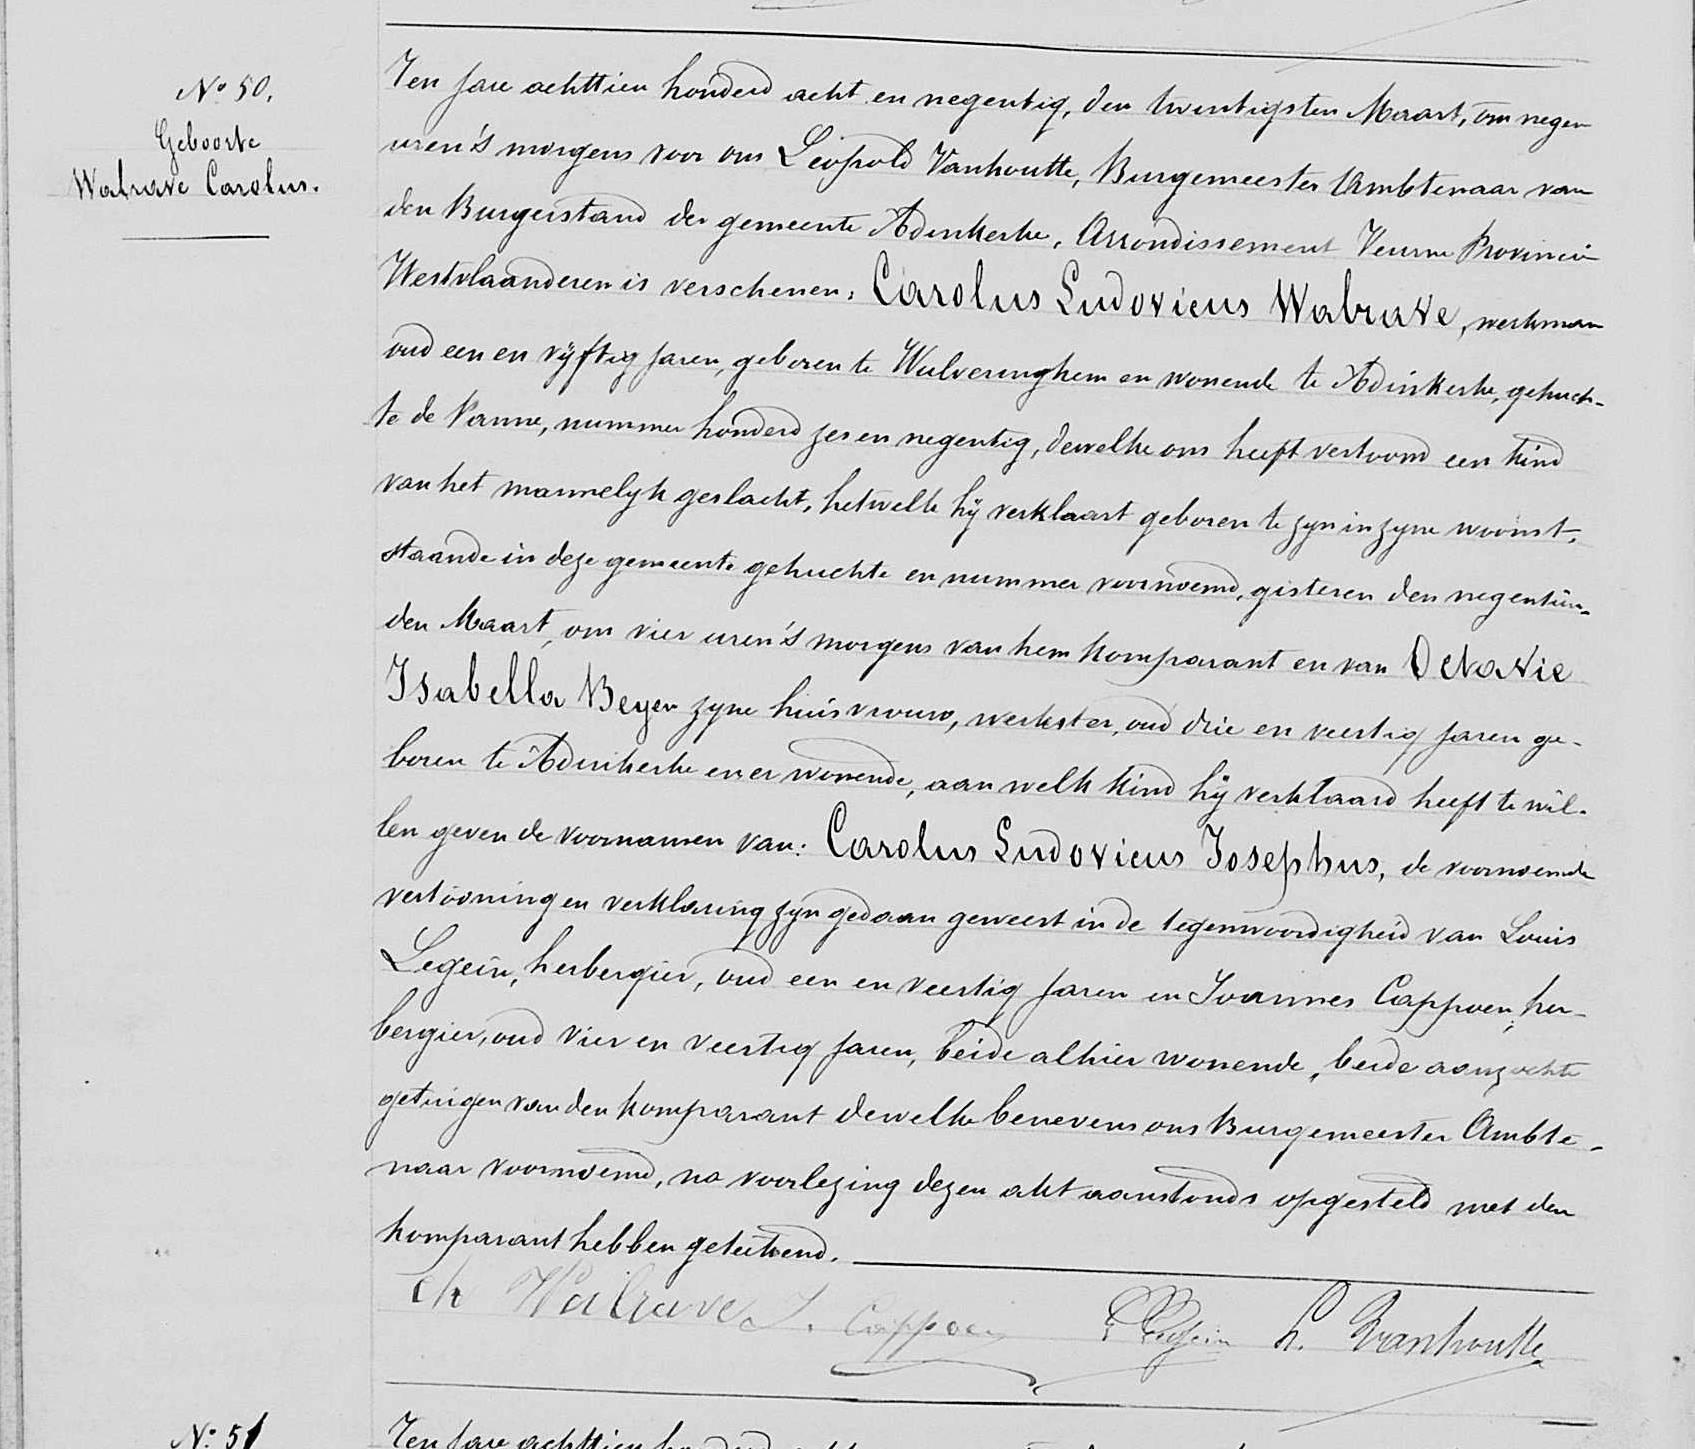 No 50.
Geboorte
Walrave Carolus.
Ten jare achttien honderd acht en negentig, den twintigsten Maart, om negen
uren 's morgens voor ons Leopold Vanhoutte, Burgemeester Ambtenaar van
den Burgerstand der gemeente Adinkerke, Arrondissement Veurne Provincie
Westvlaanderen is verschenen: Carolus Ludovicus Walrave, werkman
oud een en vyftig jaren, geboren te Wulveringhem en wonende te Adinkerke, gehuch-
te de Panne, nummer honderd zes en negentig, dewelke ons heeft vertoond een kind
van het mannelyk geslacht, hetwelk hij verklaart geboren te zyn in zyne woonst,
staande in deze gemeente gehuchte en nummer voornoemd, gisteren den negentien-
den Maart, om vier uren 's morgens van hem komparant en van Octavie
Isabella Beyen zyne huisvrouw, werkster, oud drie en veertig jaren ge-
boren te Adinkerke en er wonende, aan welk kind hij verklaard heeft te wil-
len geven de voornamen van: Carolus Ludovicus Josephus, de voornoemde
vertooning en verklaring zyn gedaan geweest in de tegenwoordigheid van Louis
Legein, herbergier, oud een en veertig jaren en Joannes Cappoen, her-
bergier, oud vier en veertig jaren, beide alhier wonende, beide aanzochte
getuigen van den komparant dewelke benevens ons Burgemeester Ambte-
naar voornoemd, na voorlezing dezen akt aanstonds opgesteld met den
komparant hebben geteekend.
Ch Walrave J. Cappoen L Legein L. Vanhoutte
No 51
Ten jare achttien honderd